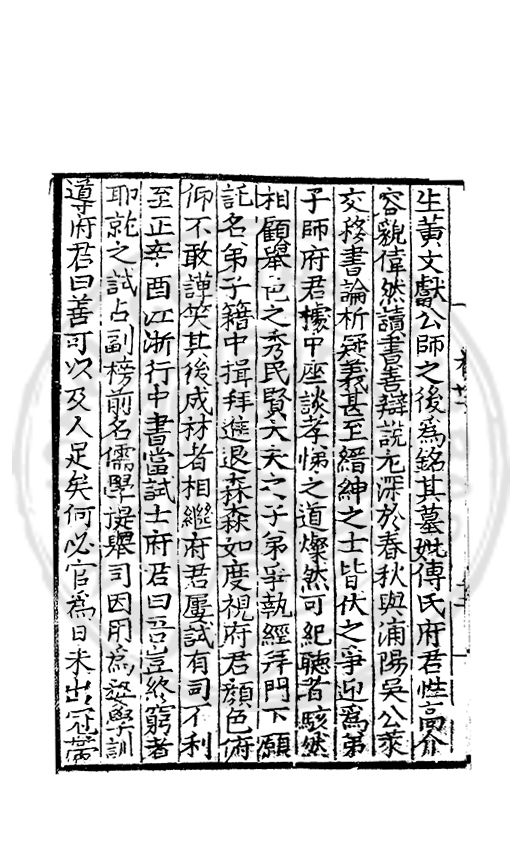 生黃文獻公師之後為銘其墓妣傅氏府君性高介
容貌偉然讀書善辯說尤深於春秋與浦陽吳公萊
交移書論析疑義甚至縉紳之士皆伏之爭迎為弟
子師府君據中座談孝悌之道燦然可紀聽者駭然
相顧舉邑之秀民賢大夫之子弟爭執經拜門下願
託名弟子籍中揖拜進退森森如度視府君顏色俯
仰不敢譁笑其後成材者相繼府君屢試有司不利
至正辛酉江浙行中書當試士府君曰吾豈終窮者
耶就之試占副榜前名儒學提舉司因用為證學訓
導府君曰善可以及人足矣何必官為日未出冠帶